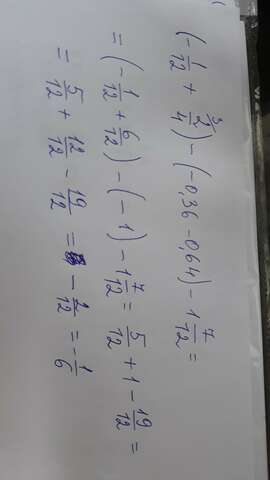 (-1/12 + ³2/4) - (-0,36 - 0,64) - 1 7/12 =
= (-1/12 + 6/12) - (-1) - 1 7/12 = 5/12 + 1 - 19/12 =
= 5/12 + 12/12 - 19/12 = - 2/12 = - 1/6